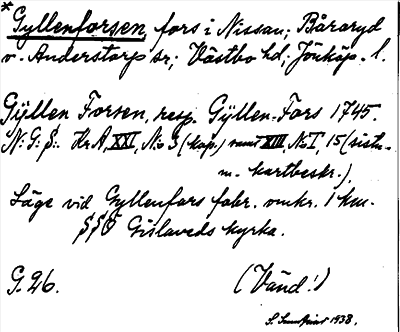 * Gyllenforsen, fors i Nissan; Båraryd
o. Anderstorp sr; Västbo hd; Jönköp. l.
Gÿllen Forsen, resp. Gÿllen-Fors 1745.
N: G: S:. Hr A, XXI, N:o 3 (kop.) samt XIII, N:o I, 15 (sistn-
m. kartbeskr.),
Läge vid Gyllenfors fabr. omkr. 1 km.
SSO Gislaveds kyrka.
G. 26. (Vänd!)
1938.